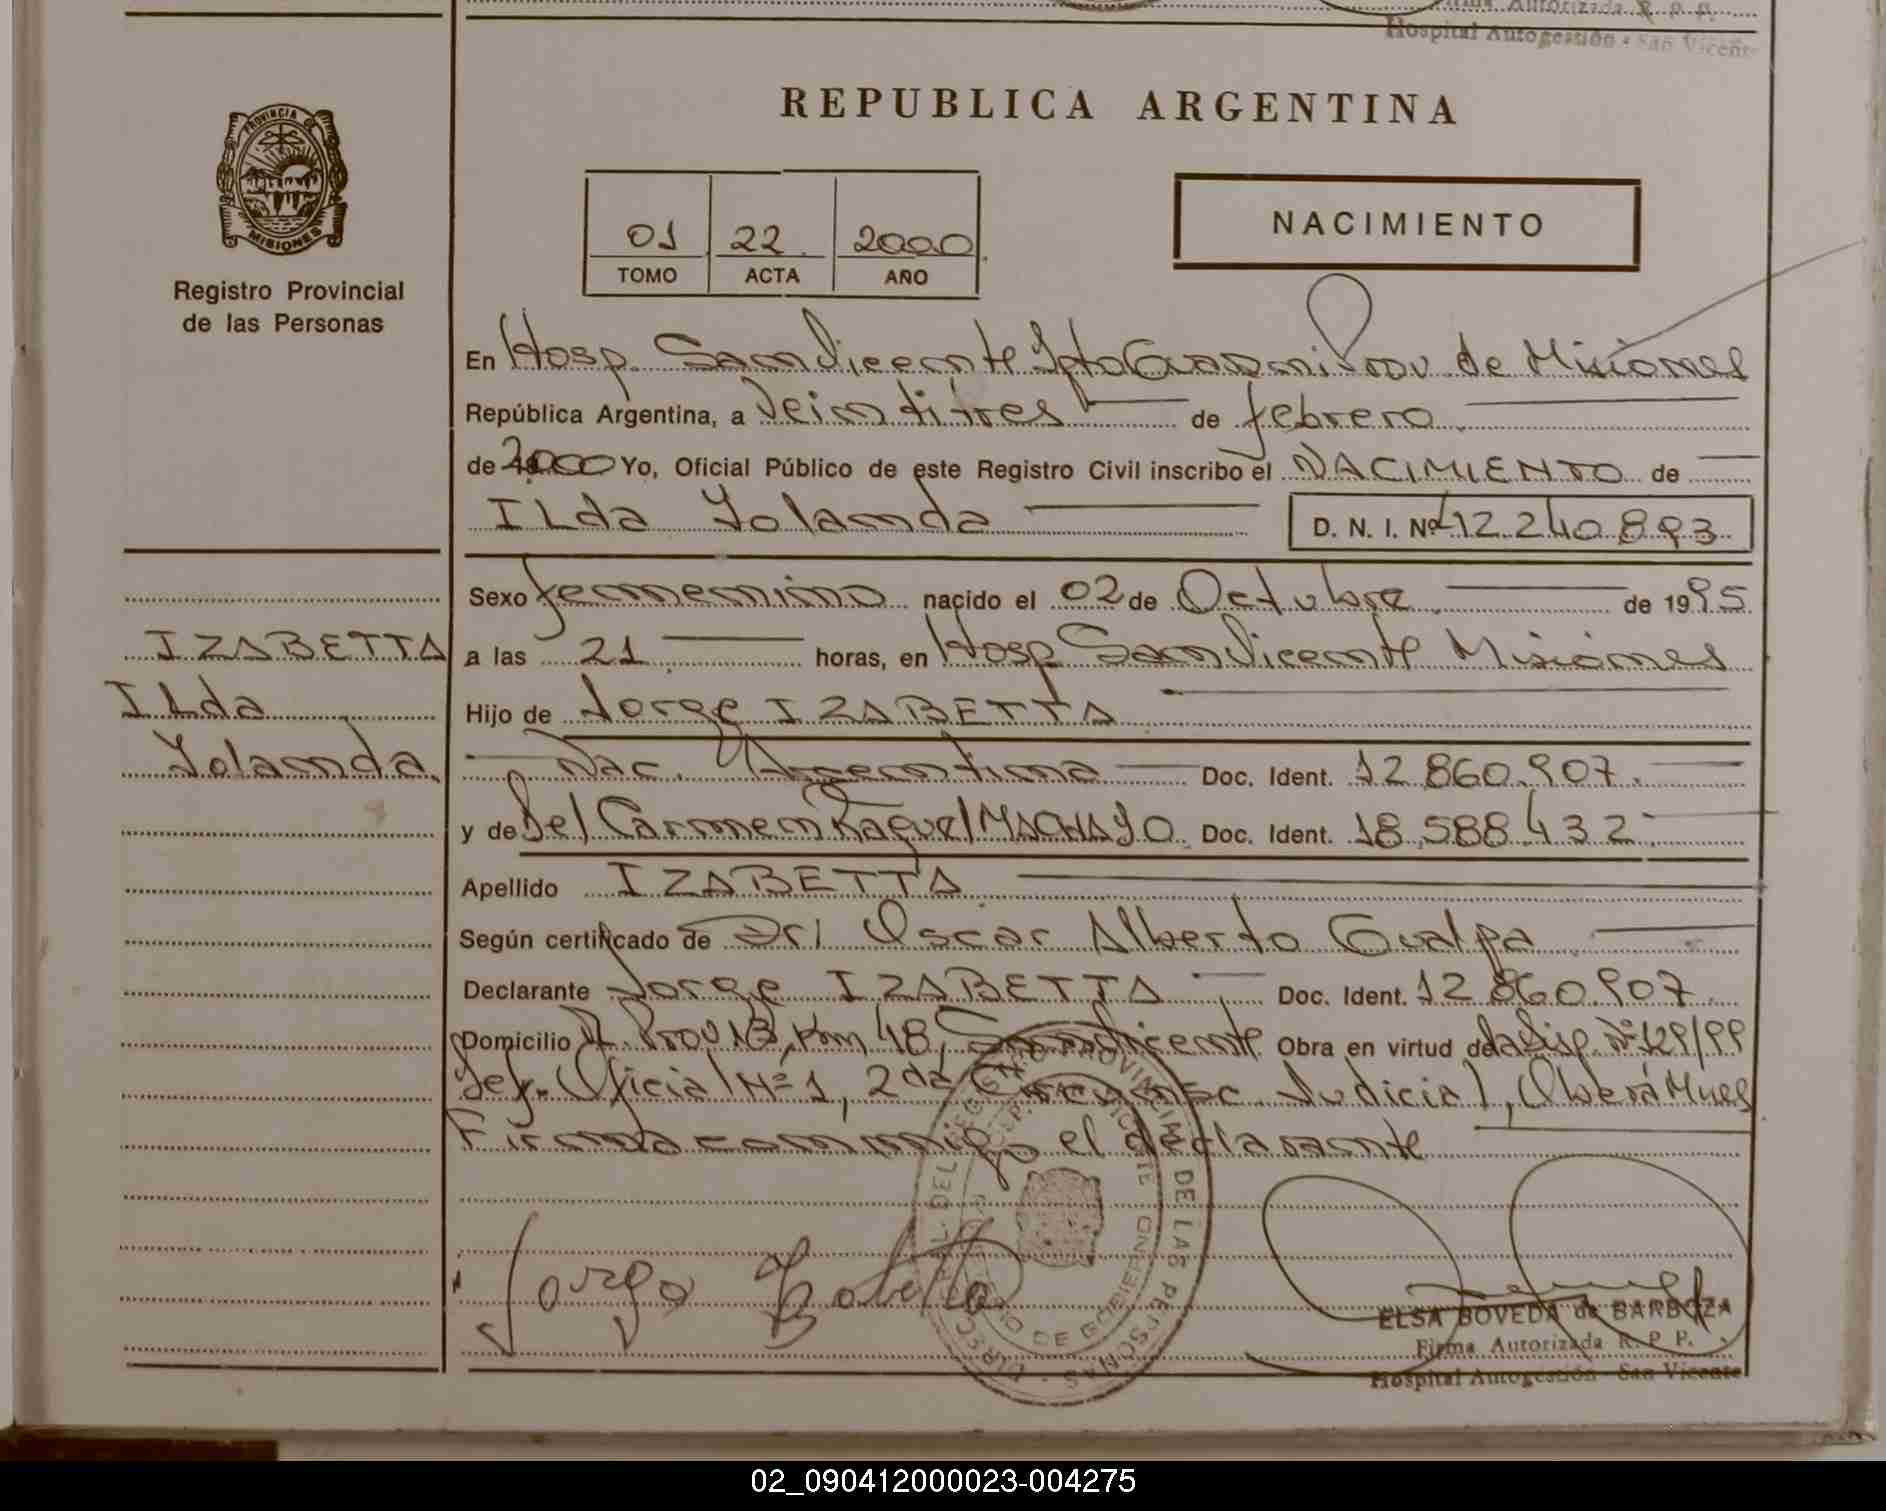 Firma Autorizada R. P. P.
Hospital Autogestión - San Vicente
PROVINCIA DE
MISIONES
Registro Provincial
de las Personas
REPUBLICA ARGENTINA
01 22 2000
TOMO ACTA AÑO
NACIMIENTO
En Hosp. San Vicente Dpto Guarani Prov. de Misiones
República Argentina, a Veintitres de febrero
de 2000 Yo, Oficial Público de este Registro Civil inscribo el NACIMIENTO de
ILda Yolanda D. N. I. Nº 42.240.893
Sexo femenino nacido el 02 de Octubre de 1995
a las 21 horas, en Hosp San Vicente Misiones
Hijo de Jorge IZABETTA
Nac. Argentina Doc. Ident. 12.860.907.
y de Del Carmen Raquel MACHAYO Doc. Ident. 18.588.432
Apellido IZABETTA
Según certificado de Dr. Oscar Alberto Gualpa
Declarante Jorge IZABETTA Doc. Ident. 12.860.907
Domicilio R. Prov 13, Km 48, San Vicente Obra en virtud de la Disp. Nº 129/99
Def. Oficial Nº 1, 2da Circunsc. Judicial, Oberá Mnes
Firma conmigo el declarante
IZABETTA
ILda
Yolanda
DEL REGISTRO PROVINCIAL DE LAS PERSONAS
DE GOBIERNO
ELSA BOVEDA de BARBOZA
Firma Autorizada R. P. P.
Hospital Autogestión - San Vicente
02_090412000023-004275